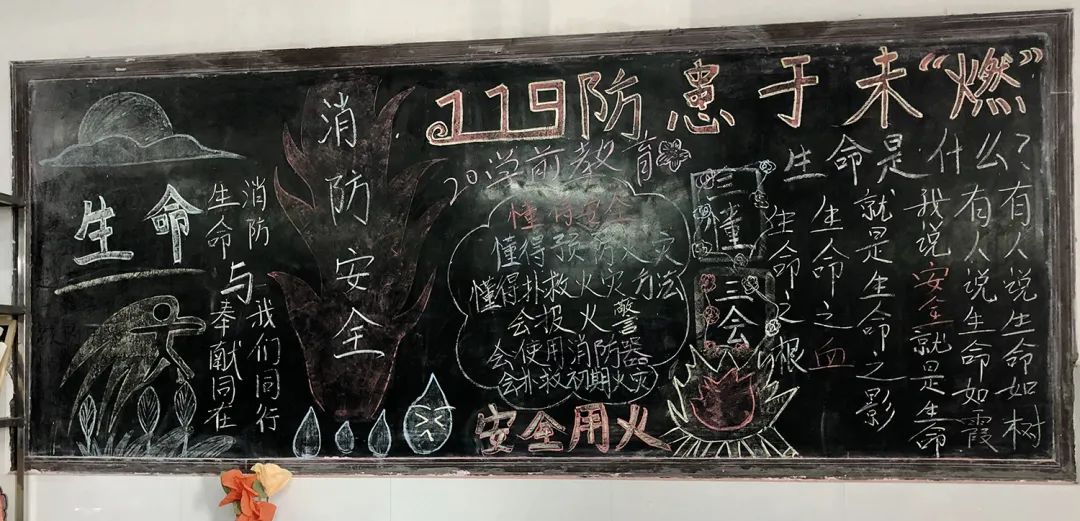 119防患于未“燃”
生命
消防 我们同行
与
生命 奉献同在
消防安全
20学前教育
懂得预防火灾
懂得扑救火灾方法
会报火警
会使用消防器
会扑救初期火灾
安全用火
三懂
三会
生命是什么?
有人说生命如树
有人说生命如霞
我说安全就是生命
就是生命之影
生命之血
生命之根